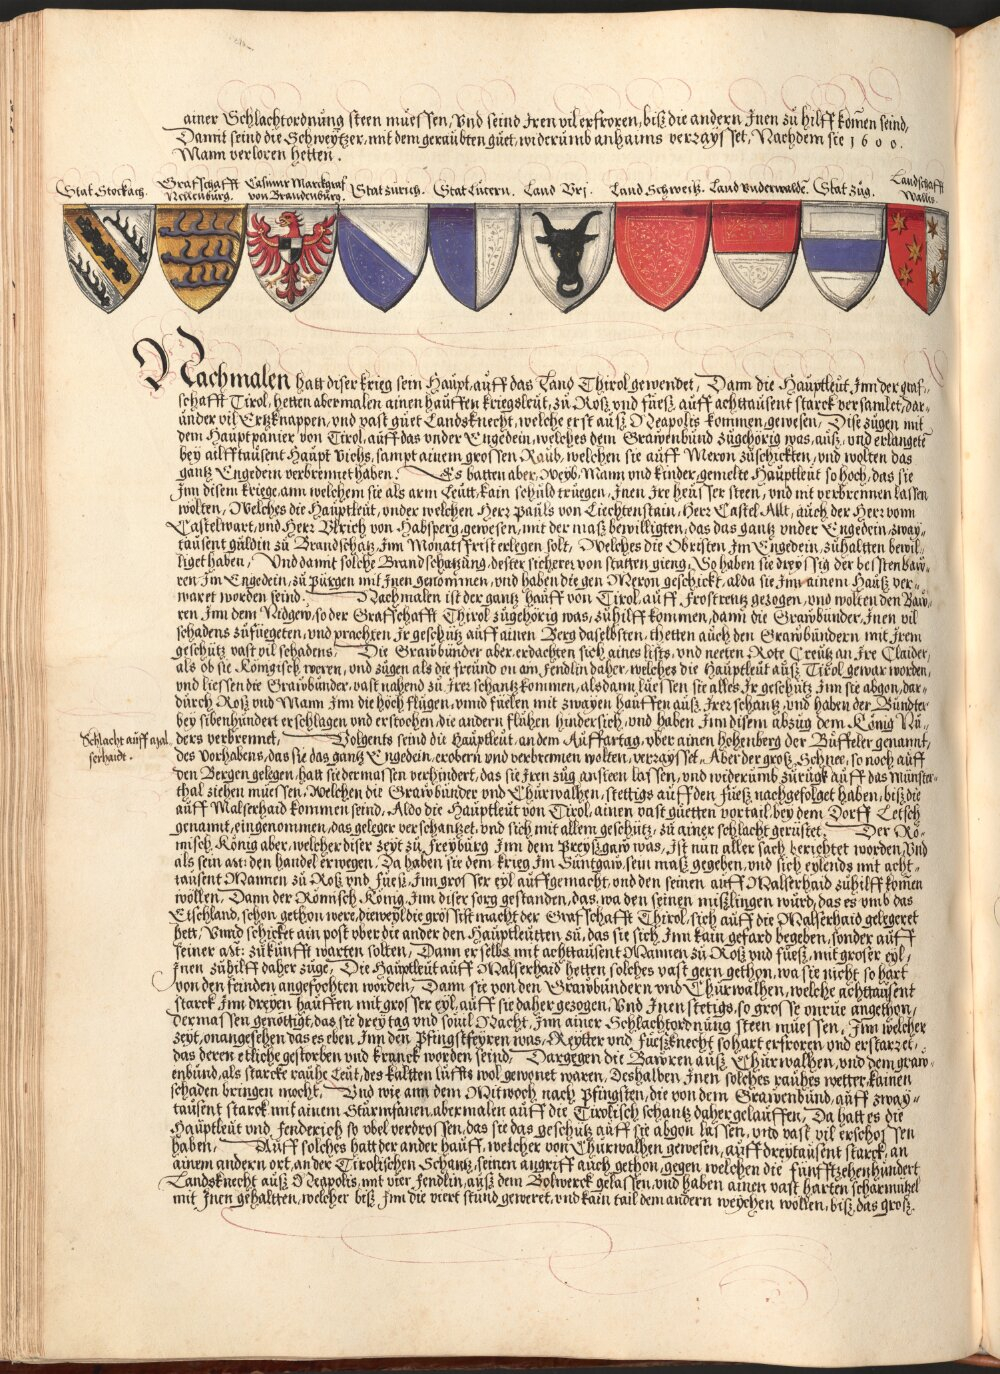 ainer Schlachtordnung steen muessen, Vnd seind Iren vil erfroren, biß die andern Inen zu hilff komen seind,
Damit seind die Schweytzer, mit dem geraubten guet, widerumb anhaims verraysset, Nachdem sie 1600.
Mann verloren hetten.
Stat Stockach. Grafschafft Nellenburg. Casimir Marckgraf von Brandenburg. Stat zürich. Stat Lucern. Land Vri. Land Schweitz. Land vnderwaldē. Stat zug. Landschafft Walles.
Nachmalen hatt diser krieg sein Haupt, auff das Land Thirol gewendet, Dann die Hauptleut, Inn der graf-
schafft Tirol, hetten abermalen ainen hauffen kriegsleut, zu Roß vnd fueß, auff achttausent starck versamlet, dar-
under vil Ertzknappen, vnd vast guet Landsknecht, welche erst auß Neapolis kommen, gewesen, Dise zugen mit
dem Hauptpanier von Tirol, auff das vnder Engedein, welches dem Grawenbund zugehörig was, auß, vnd erlangetē
bey ailfftausent Haupt Vichs, sampt ainem grossen Raub, welchen sie auff Meron zuschickten, vnd wolten das
gantz Engedein verbrennet haben. Es batten aber, Weyb, Mann vnd kinder, gemelte Hauptleut so hoch, das sie
Inn disem kriege, ann welchem sie als arm Leutt, kain schuld truegen, Inen Ire heusser steen, vnd nit verbrennen lassen
wolten, Welches die Hauptleut, vnder welchen Herr Pauls von Liechtenstain, Herr Castel Allt, auch der Herr vom
Castelwart, vnd Herr Vlrich von Habsperg, gewesen, mit der maß bewilligten, das das gantz vnder Engedein, zway-
tausent guldin zu Brandschatz, Inn Monatsfrist erlegen solt, Welches die Obristen Im Engedein, zuhaltten bewil-
liget haben, Vnd damit solche Brandschatzung, dester sicherer von statten gieng, So haben sie dreyssig der besten Baw-
ren Im Engedein, zu Bürgen mit Inen genommen, vnd haben die gen Meron geschickt, alda sie Inn ainem Hauß ver-
waret worden seind. Nachmalen ist der gantz hauff von Tirol, auff Frostrentz gezogen, vnd wolten den Baw-
ren Inn dem Nidgew, so der Grafschafft Thirol zugehörig was, zu hilff kommen, dann die Grawbünder, Inen vil
schadens zufuegeten, vnd prachten Ir geschütz auff ainen Berg daselbsten, thetten auch den Grawbündern mit Irem
geschütz vast vil schadens. Die Grawbünder aber, erdachten sich aines lists, vnd neeten Rote Creutz an Ire Claider,
als ob sie Königisch weren, vnd zugen als die freund on am fendlin daher, welches die Hauptleut auß Tirol gewar worden,
vnd liessen die Grawbünder, vast nahend zu Irer schantz kommen, alsdann, liessen sie alles Ir geschütz Inn sie abgon, dar-
durch Roß vnd Mann Inn die höch flugen, vnnd fuelen mit zwayen hauffen auß Irer schantz, vnd haben der Bündter
bey sibenhundert erschlagen vnd erstochen, die andern fluhen hindersich, vnd haben Inn disem abzug dem König Nu-
ders verbrennet, Volgents seind die Hauptleut, an dem Auffartag, vber ainen hohenberg der Buffeler genannt,
des vorhabens, das sie das gantz Engedein, erobern vnd verbrennen wolten, verraysset. Aber der groß Schnee, so noch auff
den Bergen gelegen, hatt sie dermassen verhindert, das sie Iren zug ansteen lassen, vnd widerumb zuruck auff das Münster-
thal ziehen muessen, Welchen die Grawbünder vnd Churwalhen, stettigs auff den fueß nachgefolget haben, biß die
auff Malserhaid kommen seind, Aldo die Hauptleut von Tirol, ainen vast guetten vortail, bey dem Dorff Letsch
genannt, eingenommen, das geleger verschantzet, vnd sich mit allem geschütz, zu ainer schlacht gerüstet. Der Rö-
misch König aber, welcher diser zeyt zu Freyburg Inn dem Preyßgaw was, Ist nun aller sach berichtet worden, Vnd
als sein Mt: den handel erwegen, Da haben sie dem krieg Im Suntgaw, sein maß gegeben, vnd sich eylends mit acht-
tausent Mannen zu Roß vnd fueß, Inn grosser eyl auffgemacht, vnd den seinen auff Malserhaid zuhilff komen
wollen. Dann der Römisch König, Inn diser sorg gestanden, das, wa den seinen mißlingen wurd, das es vmb das
Etschland, schon gethon were, dieweyl die grössist macht der Grafschafft Thirol, sich auff die Malserhaid gelegeret
hett, Vnnd schicket ain post vber die ander den Hauptleutten zu, das sie sich Inn kain gefard begeben, sonder auff
seiner Mt: zukunfft warten solten, Dann er selbs, mit achttausent Mannen zu Roß vnd fueß, mit groser eyl,
Inen zuhilff daher züge, Die Hauptleut auff Malserhaid hetten solches vast gern gethon, wa sie nicht so hart
von den feinden angefochten worden, Dann sie von den Grawbündern vnd Churwalhen, welche achttausent
starck, Inn dreyen hauffen, mit grosser eyl, auff sie daher gezogen, Vnd Inen stetigs, so grosse onrue angethon,
dermassen genöttigt, das sie drey tag vnd souil Nacht, Inn ainer Schlachtordnung steen muessen, Inn welcher
zeyt, onangesehen das es eben Inn den Pfingstfeyren was, Reytter vnd fueßknecht so hart erfroren vnd erstarret,
das deren etliche gestorben vnd kranck worden seind, Dargegen die Bawren auß Churwalhen, vnd dem graw-
enbund, als starcke rauhe Leut, des kaltten luffts wol gewonet waren, Deshalben Inen solches rauhes wetter, kainen
schaden bringen mocht, Vnd wie ann dem Mitwoch nach Pfingsten, die von dem Grawenbund, auff zway-
tausent starck, mit ainem Sturmfanen, abermalen auff die Tirolisch schantz daher gelauffen, Da hatt es die
Hauptleut vnd fenderich so vbel verdrossen, das sie das geschütz auff sie abgon lassen, vnd vast vil erschossen
haben, Auff solches hatt der ander hauff, welcher von Churwalhen gewesen, auff dreytausent starck, an
ainem andern ort, an der Tirolischen Schantz, seinen angriff auch gethon, gegen welchen die fünfftzehenhundert
Landsknecht auß Neapolis, mit vier fendlin, auß dem Bolwerck gelassen, vnd haben ainen vast harten scharmützel
mit Inen gehaltten, welcher biß Inn die viert stund geweret, vnd kain tail dem andern weychen wollen, biß das groß.
Schlacht auff Malserhaidt.